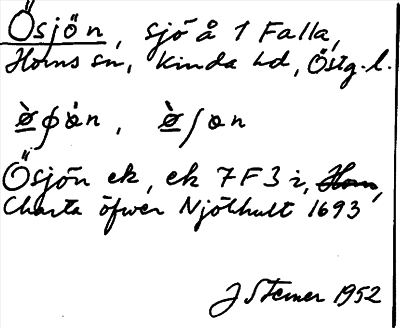 Ösjön, sjö å 1 Falla,
Horns sn, Kinda hd, Östg. l.
Ösjön ek, ek 7F3i,
Charta öfwer Njölhult 1693
J Sterner 1952